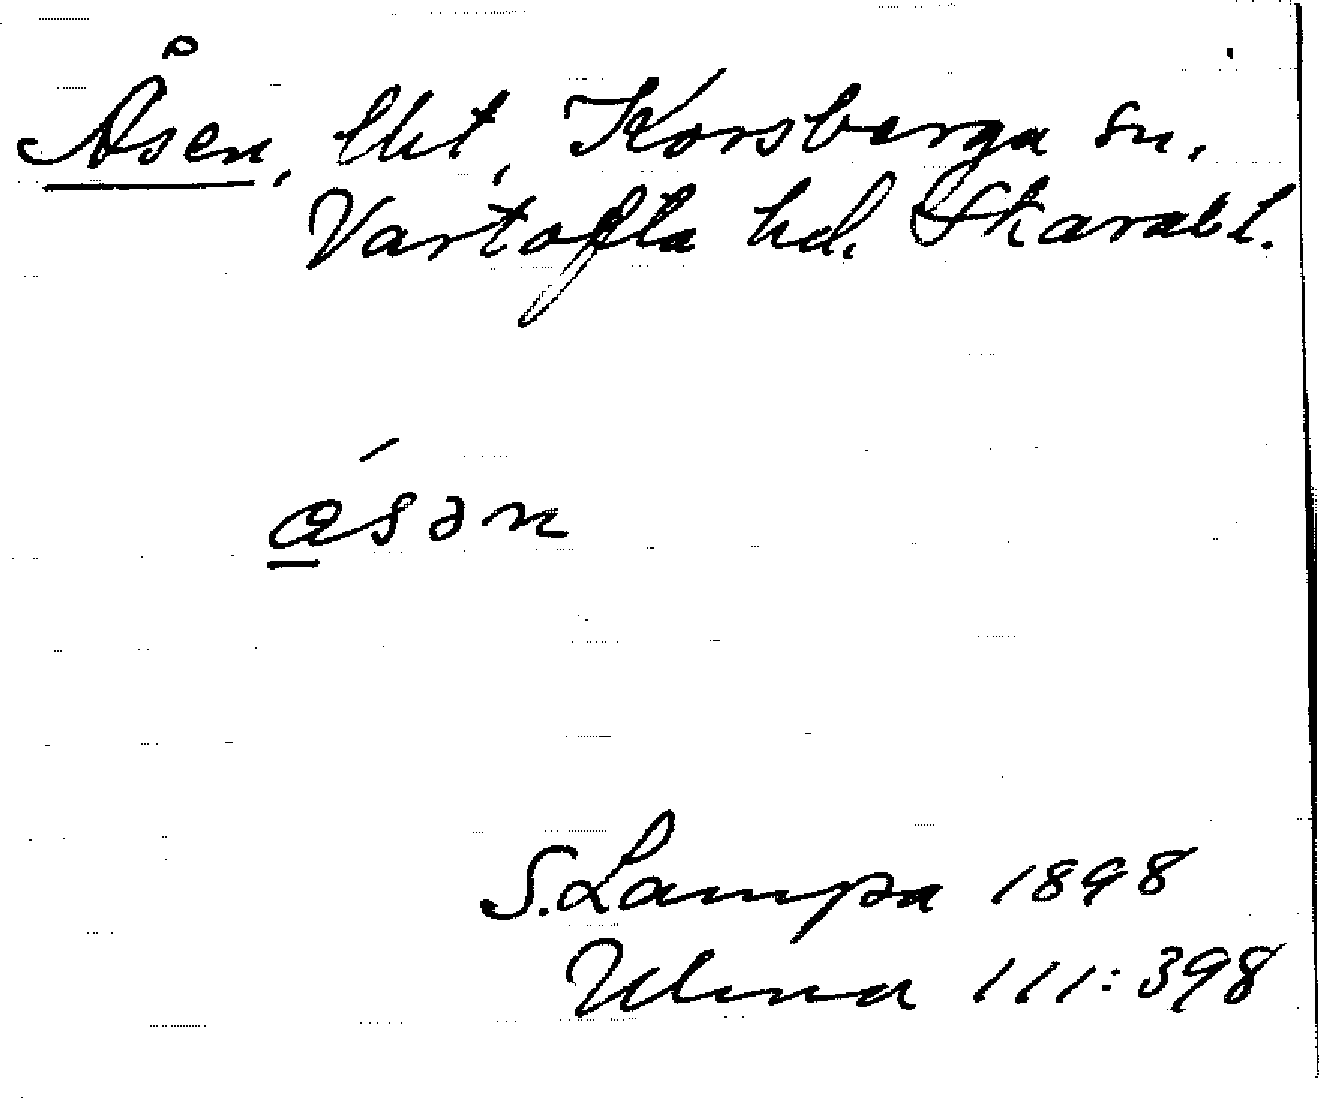 Åsen, lht, Korsberga sn.
Vartofta hd. Skarab l.
åsən
S. Lampa 1898
Ulma 111:398